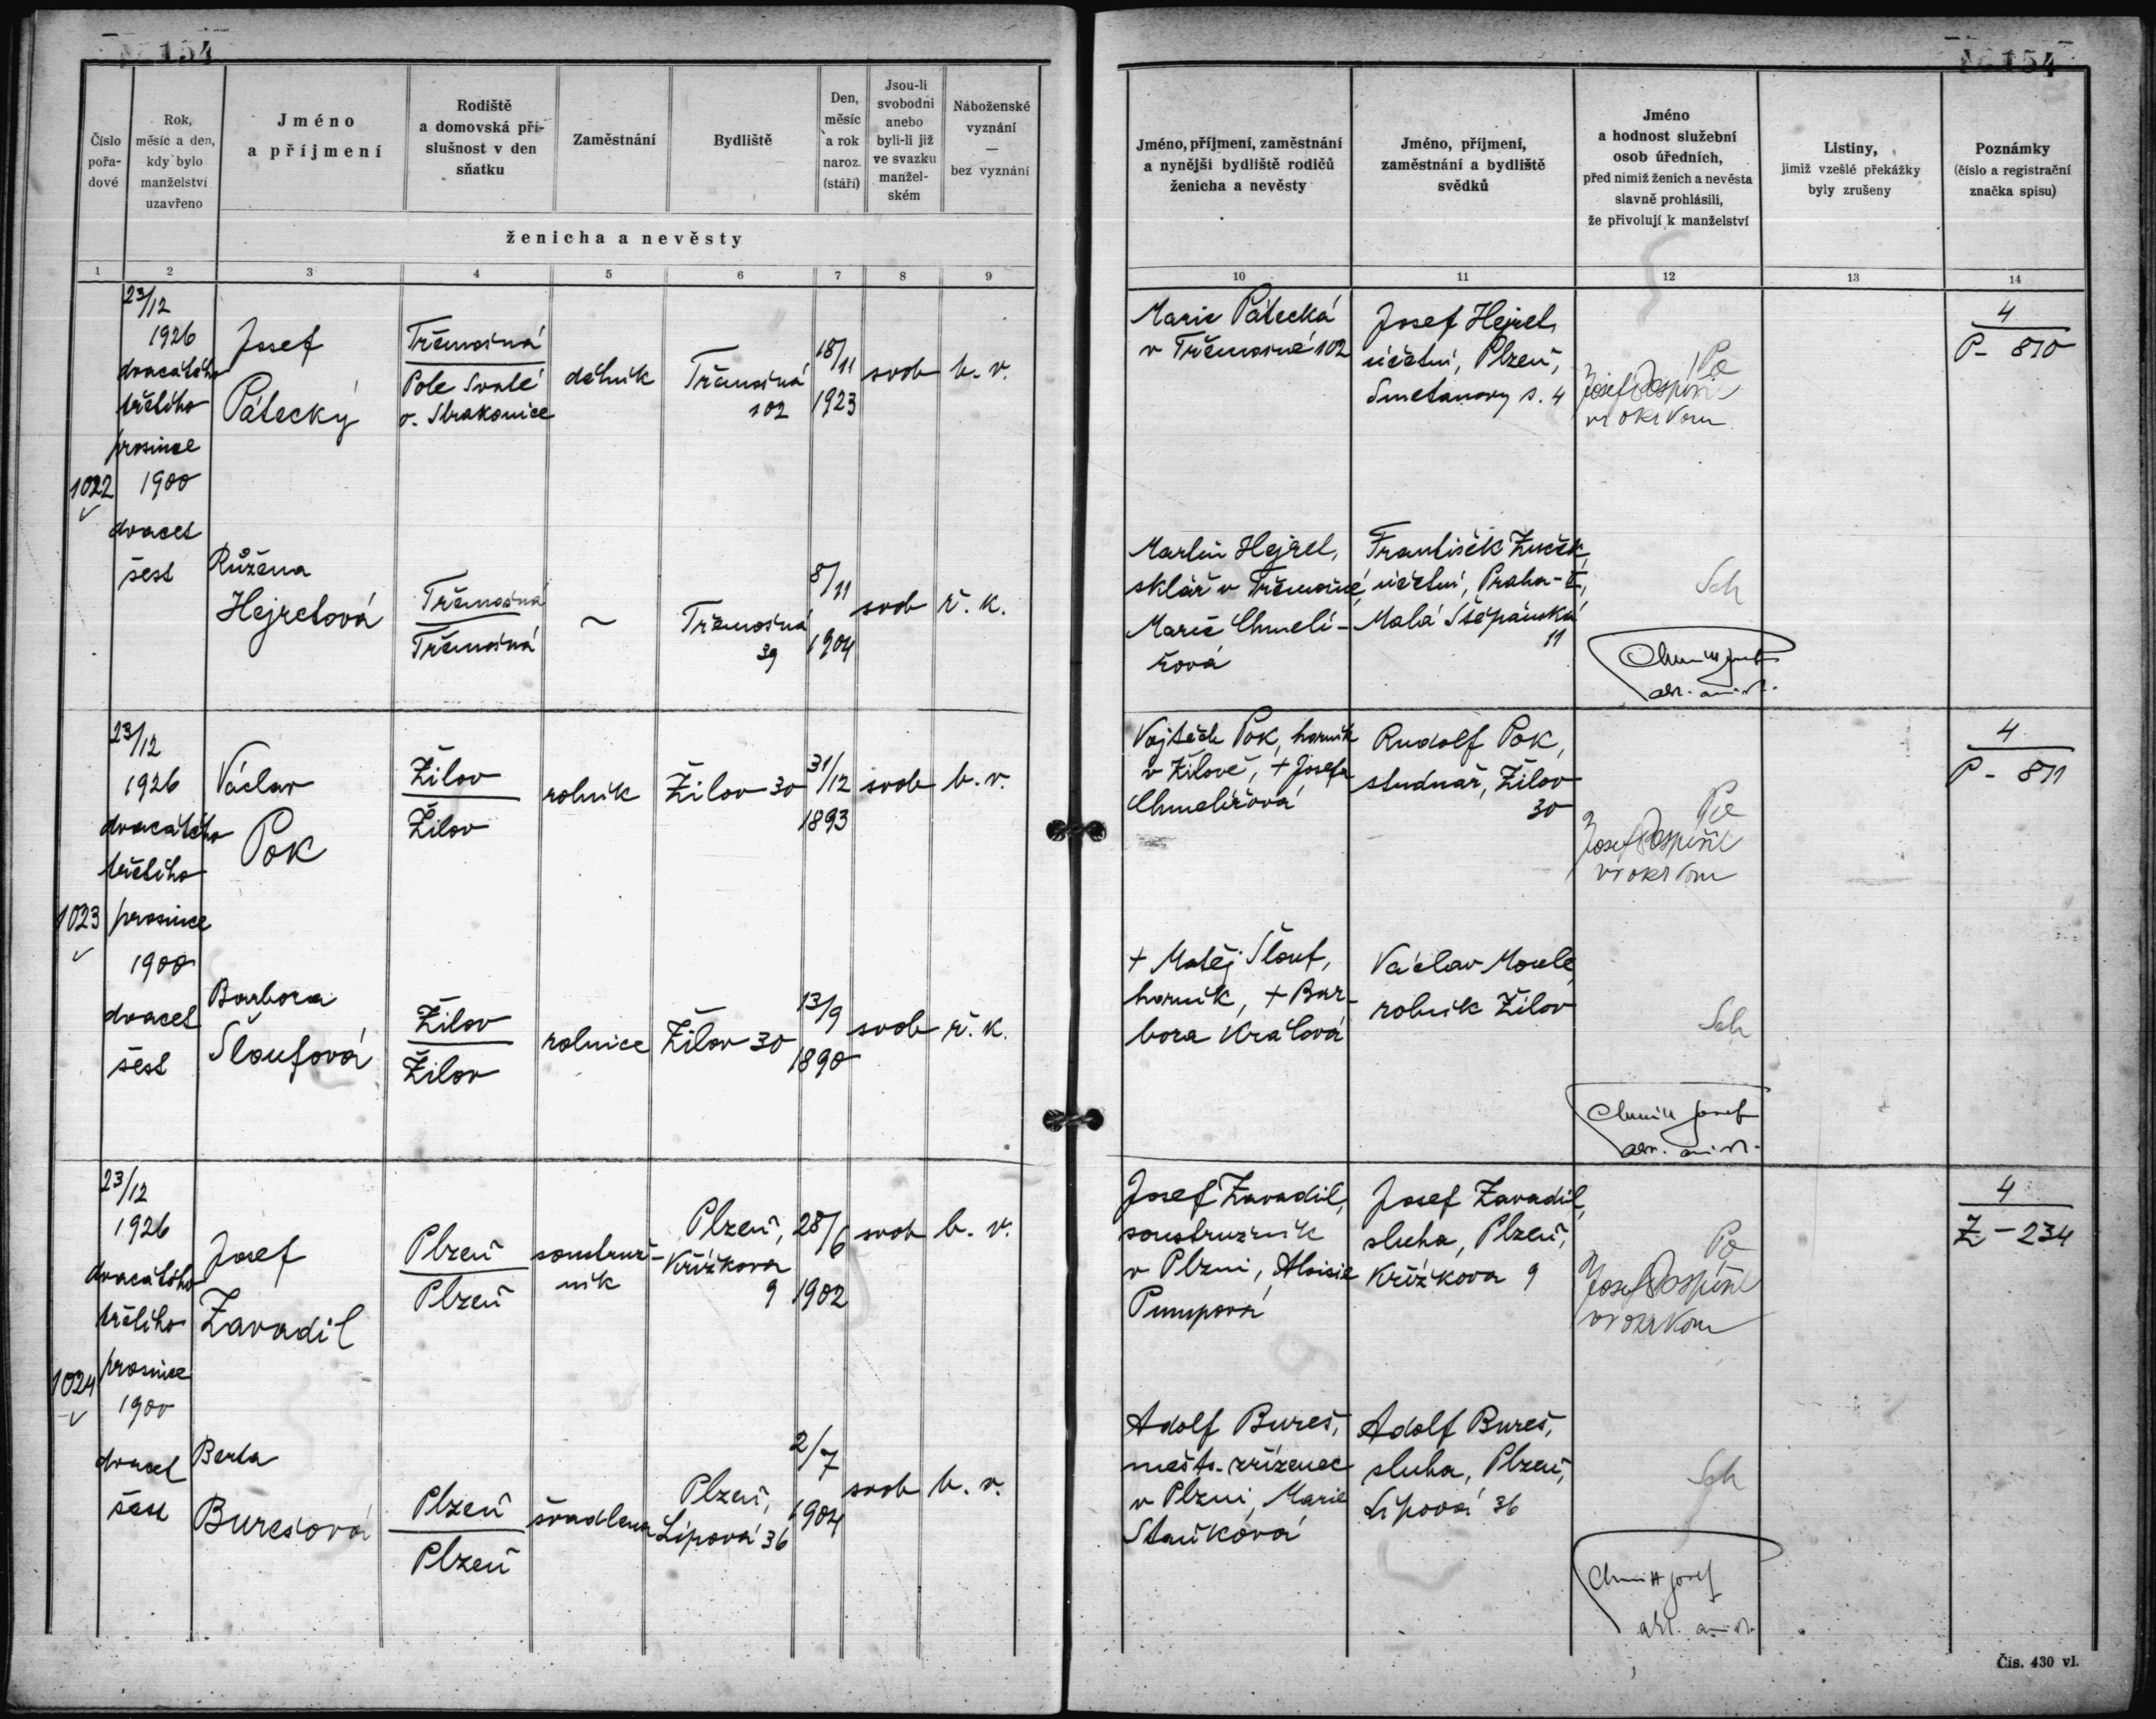 154
154
Číslo pořa- dové
Rok, měsíc a den, kdy bylo manželství uzavřeno
Jméno a příjmení
Rodiště a domovská pří- slušnost v den sňatku
Zaměstnání
Bydliště
Den, měsíc a rok naroz. (stáří)
Jsou-li svobodni anebo byli-li již ve svazku manžel- ském
Náboženské vyznání — bez vyznání
ženicha a nevěsty
Jméno, příjmení, zaměstnání a nynější bydliště rodičů ženicha a nevěsty
Jméno, příjmení, zaměstnání a bydliště svědků
Jméno a hodnost služební osob úředních, před nimiž ženich a nevěsta slavně prohlásili, že přivolují k manželství
Listiny, jimiž vzešlé překážky byly zrušeny
Poznámky (číslo a registrační značka spisu)
1 2 3 4 5 6 7 8 9 10 11 12 13 14
1022
23/12
1926
dvacátého
třetího
prosince
1900
dvacet
šest
Josef
Pátecký
Třemošná
Pole Svaté
o. Strakonice
dělník
Třemošná
102
18/11
1923
svob
b. v.
Marie Pátecká
v Třemošné 102
Josef Hejret,
účetní, Plzeň,
Smetanovy s. 4
Po
Josef Pospíšil
4
P - 810
Růžena
Hejretová
Třemošná
Třemošná
~
Třemošná
39
8/11
1904
svob
ř. k.
Martin Hejret,
sklář v Třemošné,
Marie Chmelí-
řová
František Zuček,
účetní, Praha-II,
Malá Štěpánská
11
Sch
1023
23/12
1926
dvacátého
třetího
prosince
1900
dvacet
šest
Václav
Pok
Žilov
Žilov
rolník
Žilov 30
31/12
1893
svob
b. v.
Vojtěch Pok, horník
v Žilově, + Josefa
Chmelířová
Rudolf Pok,
studnař, Žilov
30
Po
Josef Pospíšil
4
P - 811
Barbora
Šloufová
Žilov
Žilov
rolnice
Žilov 30
13/9
1890
svob
ř. k.
+ Matěj Šlouf,
horník, + Bar-
bora Králová
Václav Moule
rolník Žilov
Sch
1024
23/12
1926
dvacátého
třetího
prosince
1900
dvacet
šest
Josef
Zavadil
Plzeň
Plzeň
soustruž-
ník
Plzeň,
Křížkova
9
28/6
1902
svob
b. v.
Josef Zavadil,
soustružník
v Plzni, Aloisie
Pumpová
Josef Zavadil,
sluha, Plzeň,
Křížkova 9
Po
Josef Pospíšil
4
Z - 234
Berta
Burešová
Plzeň
Plzeň
švadlena
Plzeň,
Lípová 36
2/7
1904
svob
b. v.
Adolf Bureš,
měšt. zřízenec
v Plzni, Marie
Staňková
Adolf Bureš,
sluha, Plzeň,
Lípová 36
Sch
Čís. 430 vl.